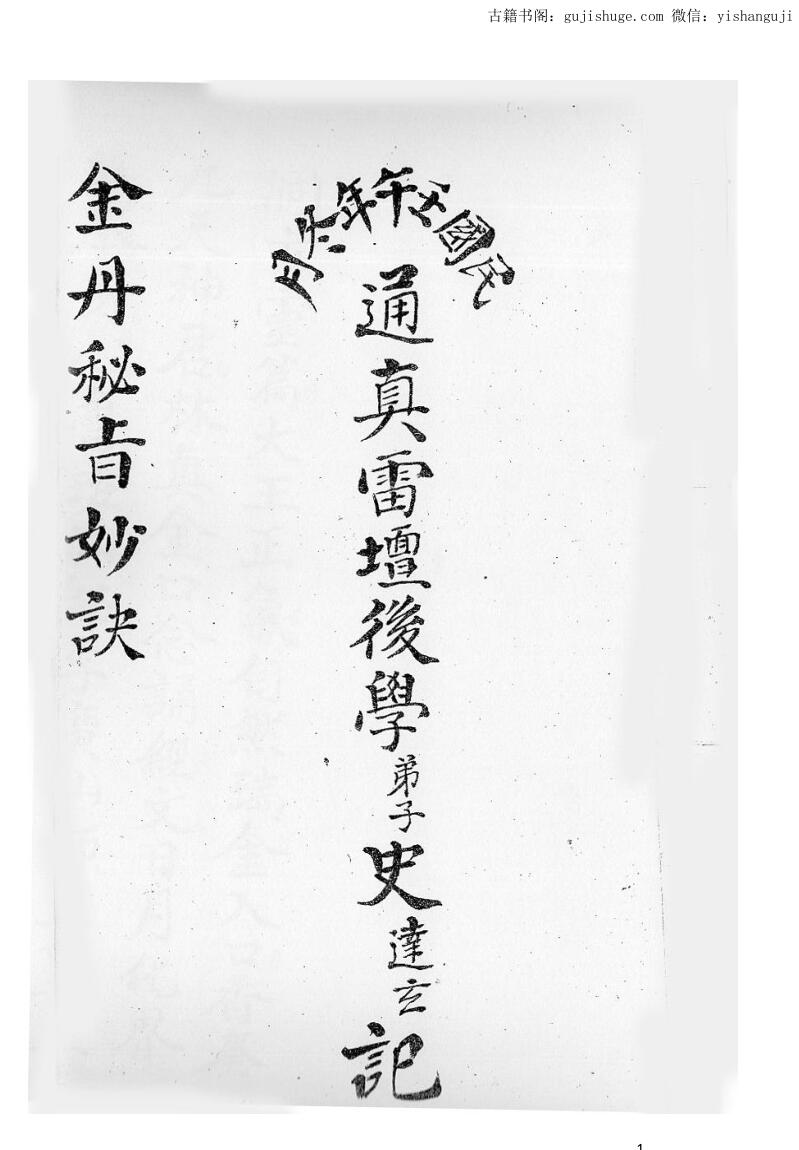 古籍书阁：gujishuge.com 微信：yishanguji
民國午年冬月
通真雷壇後學弟子史達玄記
金丹秘旨妙訣
1